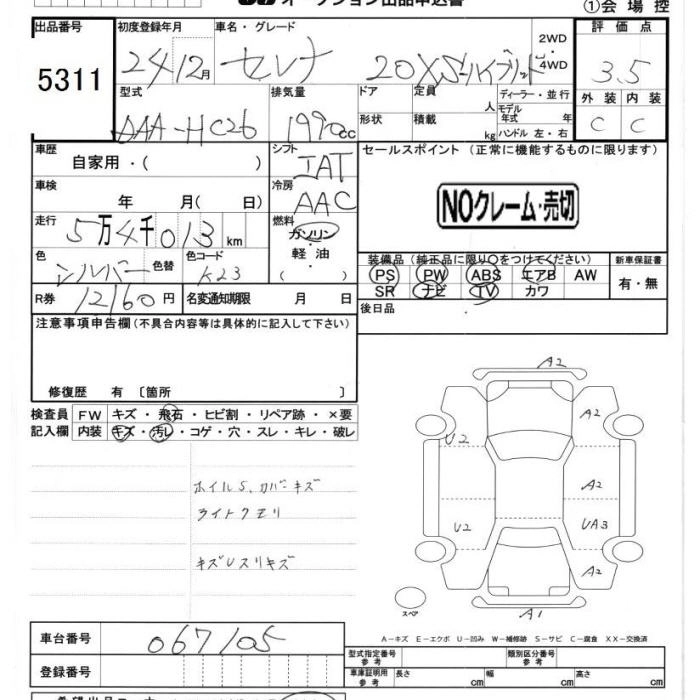 オークション出品申込書
①会場控
出品番号 初度登録年月 車名・グレード 評価点
5311 24/12月 セレナ 20XSハイブリッド 2WD・4WD 3.5
型式 排気量 ドア 定員 人 ディーラー・並行 外装 内装
DAA-HC26 1990cc 形状 積載 kg モデル年式 年 ハンドル 左・右 C C
車歴 自家用・( ) シフト IAT セールスポイント (正常に機能するものに限ります)
車検 年 月( 日) 冷房 AAC NOクレーム・売切
走行 5万4千013km 燃料 ガソリン・軽油・( )
色 シルバー 色替 色コード K23 装備品 (純正品に限り○をつけてください) 新車保証書
PS PW ABS エアB AW 有・無
SR ナビ TV カワ
R券 12160円 名変通知期限 月 日 後日品
注意事項申告欄 (不具合内容等は具体的に記入して下さい)
修復歴 有 〔箇所 〕
検査員 FW キズ・飛石・ヒビ割・リペア跡・×要
記入欄 内装 キズ・汚レ・コゲ・穴・スレ・キレ・破レ
ホイルS、カバーキズ
ライトクモリ
キズUスリキズ
A2
A2
U2
A2
U2 UA3
A2
スペア
A1
A-キズ E-エクボ U-凹み W-補修跡 S-サビ C-腐食 XX-交換済
車台番号 067105
型式指定番号 参考 類別区分番号 参考
登録番号 車庫証明用 参考 長さ cm 幅 cm 高さ cm
希望出品コーナー